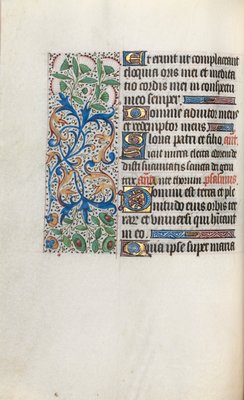 Et erunt ut complaceant
eloquia oris mei et medita
tio cordis mei in conspectu
semper
Domine adiutor meus et
redemptor meus
Gloria patri et filio. ant.
Sicut mirra electa odorem de
disti suavitatis sancta dei gene
trix. ant. ante thorum psalmus
Domini est terra et ple
nitudo eius orbis ter
rar et universi qui habitant
in eo
Quia ipse super maria